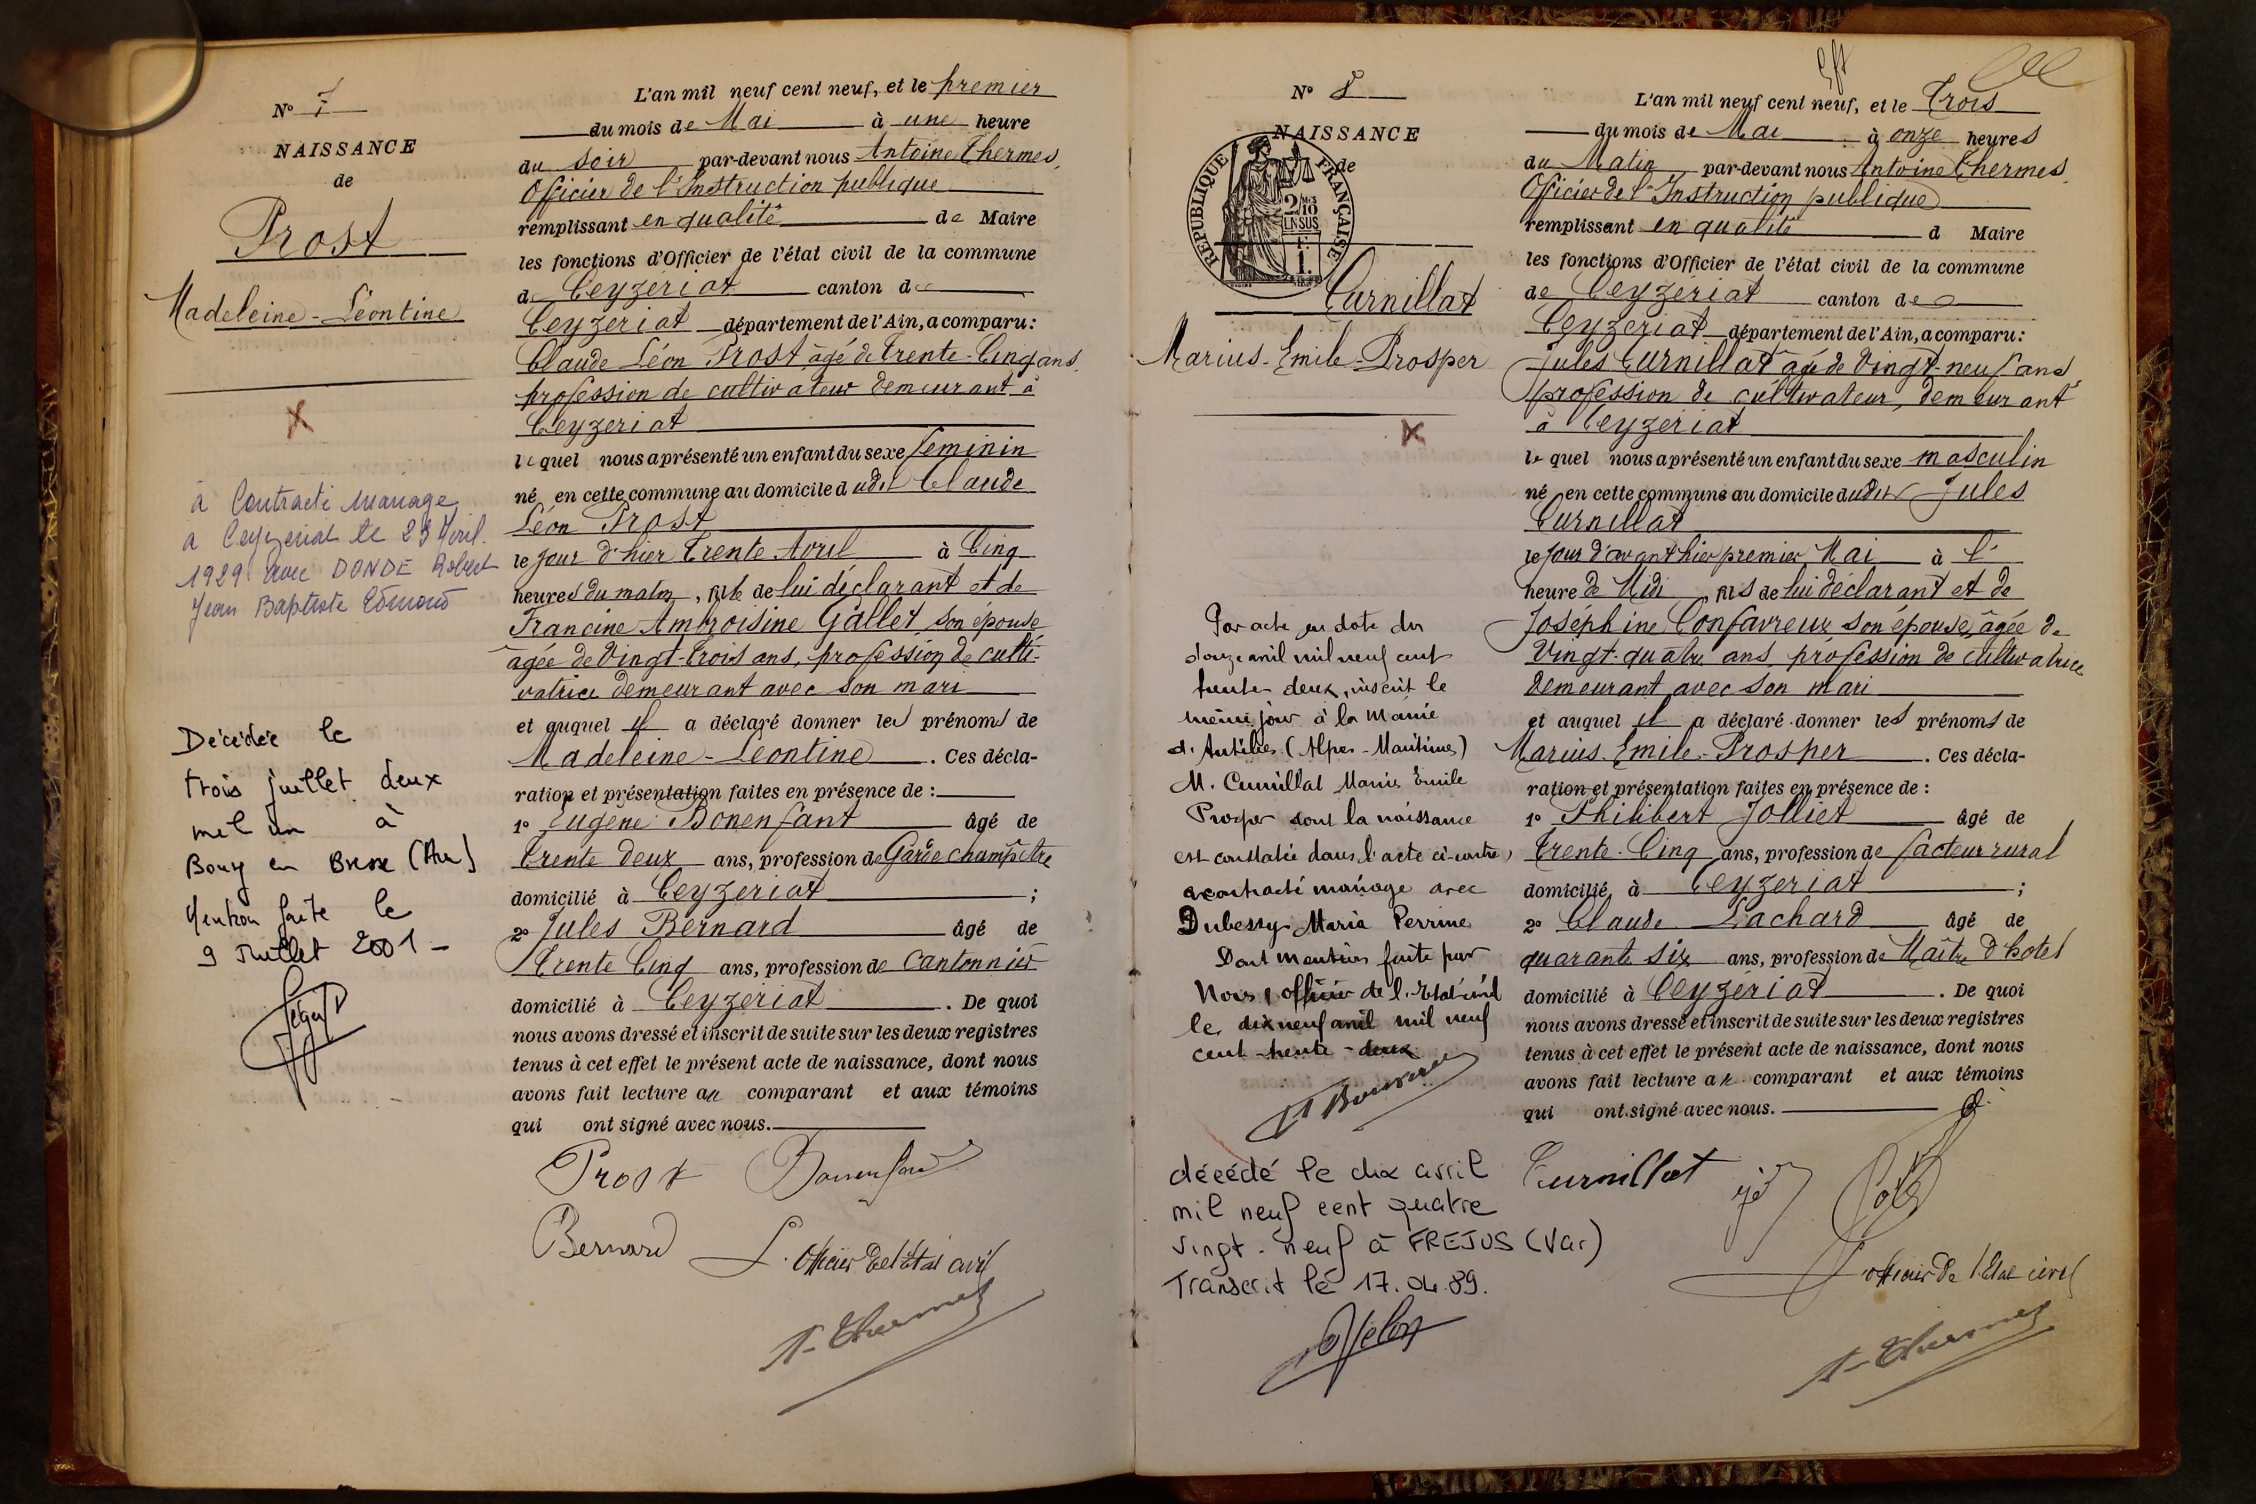 N° 7
NAISSANCE
de
Prost
Madeleine-Léontine
à Contracté mariage
à Ceyzeriat le 23 Avril.
1929 avec DONDE Robert
Jean Baptiste Edmond
Décédée le
trois juillet deux
mil un à
Bourg en Bresse (Ain)
Mention faite le
9 Juillet 2001-
L'an mil neuf cent neuf, et le premier
du mois de Mai à une heure
du soir par-devant nous Antoine Thermes,
Officier de l'Instruction publique
remplissant en qualité de Maire
les fonctions d'Officier de l'état civil de la commune
de Ceyzériat canton de
Ceyzeriat département de l'Ain, a comparu:
Claude Léon Prost âgé de Trente-Cinq ans,
profession de cultivateur demeurant à
Ceyzeriat
lequel nous a présenté un enfant du sexe féminin
né en cette commune au domicile dudit Claude
Léon Prost
le jour d'hier Trente Avril à Cinq
heures du matin, fille de lui déclarant et de
Francine Ambroisine Gallet, son épouse
âgée de Vingt-trois ans, profession de culti-
vatrice demeurant avec son mari
et auquel il a déclaré donner les prénoms de
Madeleine-Léontine. Ces décla-
ration et présentation faites en présence de :
1° Eugène Bonenfant âgé de
trente deux ans, profession de Garde champêtre
domicilié à Ceyzeriat ;
2° Jules Bernard âgé de
Trente Cinq ans, profession de Cantonnier
domicilié à Ceyzériat. De quoi
nous avons dressé et inscrit de suite sur les deux registres
tenus à cet effet le présent acte de naissance, dont nous
avons fait lecture au comparant et aux témoins
qui ont signé avec nous.
Prost Bonenfant
Bernard L'Officier de l'Etat civil
A. Thermes
N° 8
NAISSANCE
de
REPUBLIQUE FRANÇAISE
2/10
EN SUS
1
Curnillat
Marius-Emile-Prosper
Par acte en date du
douze avril mil neuf cent
trente deux, inscrit le
même jour à la Mairie
d'Antibes (Alpes-Maritimes)
M. Curnillat Marius Emile
Prosper dont la naissance
est constatée dans l'acte ci-contre,
a contracté mariage avec
Dubessy Maria Perrine
Dont mention faite par
Nous, officier de l'Etat civil
le dix neuf avril mil neuf
cent trente-deux
décédé le dix avril
mil neuf cent quatre
vingt-neuf à FREJUS (Var)
Transcrit le 17.04.89.
L'an mil neuf cent neuf, et le Trois
du mois de Mai à onze heures
du Matin par-devant nous Antoine Thermes,
Officier de l'Instruction publique
remplissant en qualité d Maire
les fonctions d'Officier de l'état civil de la commune
de Ceyzériat canton de
Ceyzeriat département de l'Ain, a comparu:
Jules Curnillat âgé de Vingt-neuf ans
profession de cultivateur, demeurant
à Ceyzeriat
lequel nous a présenté un enfant du sexe masculin
né en cette commune au domicile dudit Jules
Curnillat
le jour d'avant hier premier Mai à l'
heure de Midi, fils de lui déclarant et de
Joséphine Confavreux son épouse, âgée de
Vingt-quatre ans, profession de cultivatrice
demeurant avec son mari
et auquel il a déclaré donner les prénoms de
Marius-Emile-Prosper. Ces décla-
ration et présentation faites en présence de :
1° Philibert Jolliet âgé de
Trente-Cinq ans, profession de facteur rural
domicilié à Ceyzeriat ;
2° Claude Lachard âgé de
quarante six ans, profession de Maître d'hôtel
domicilié à Ceyzériat. De quoi
nous avons dressé et inscrit de suite sur les deux registres
tenus à cet effet le présent acte de naissance, dont nous
avons fait lecture au comparant et aux témoins
qui ont signé avec nous.
Curnillat
L'officier de l'Etat civil
A. Thermes